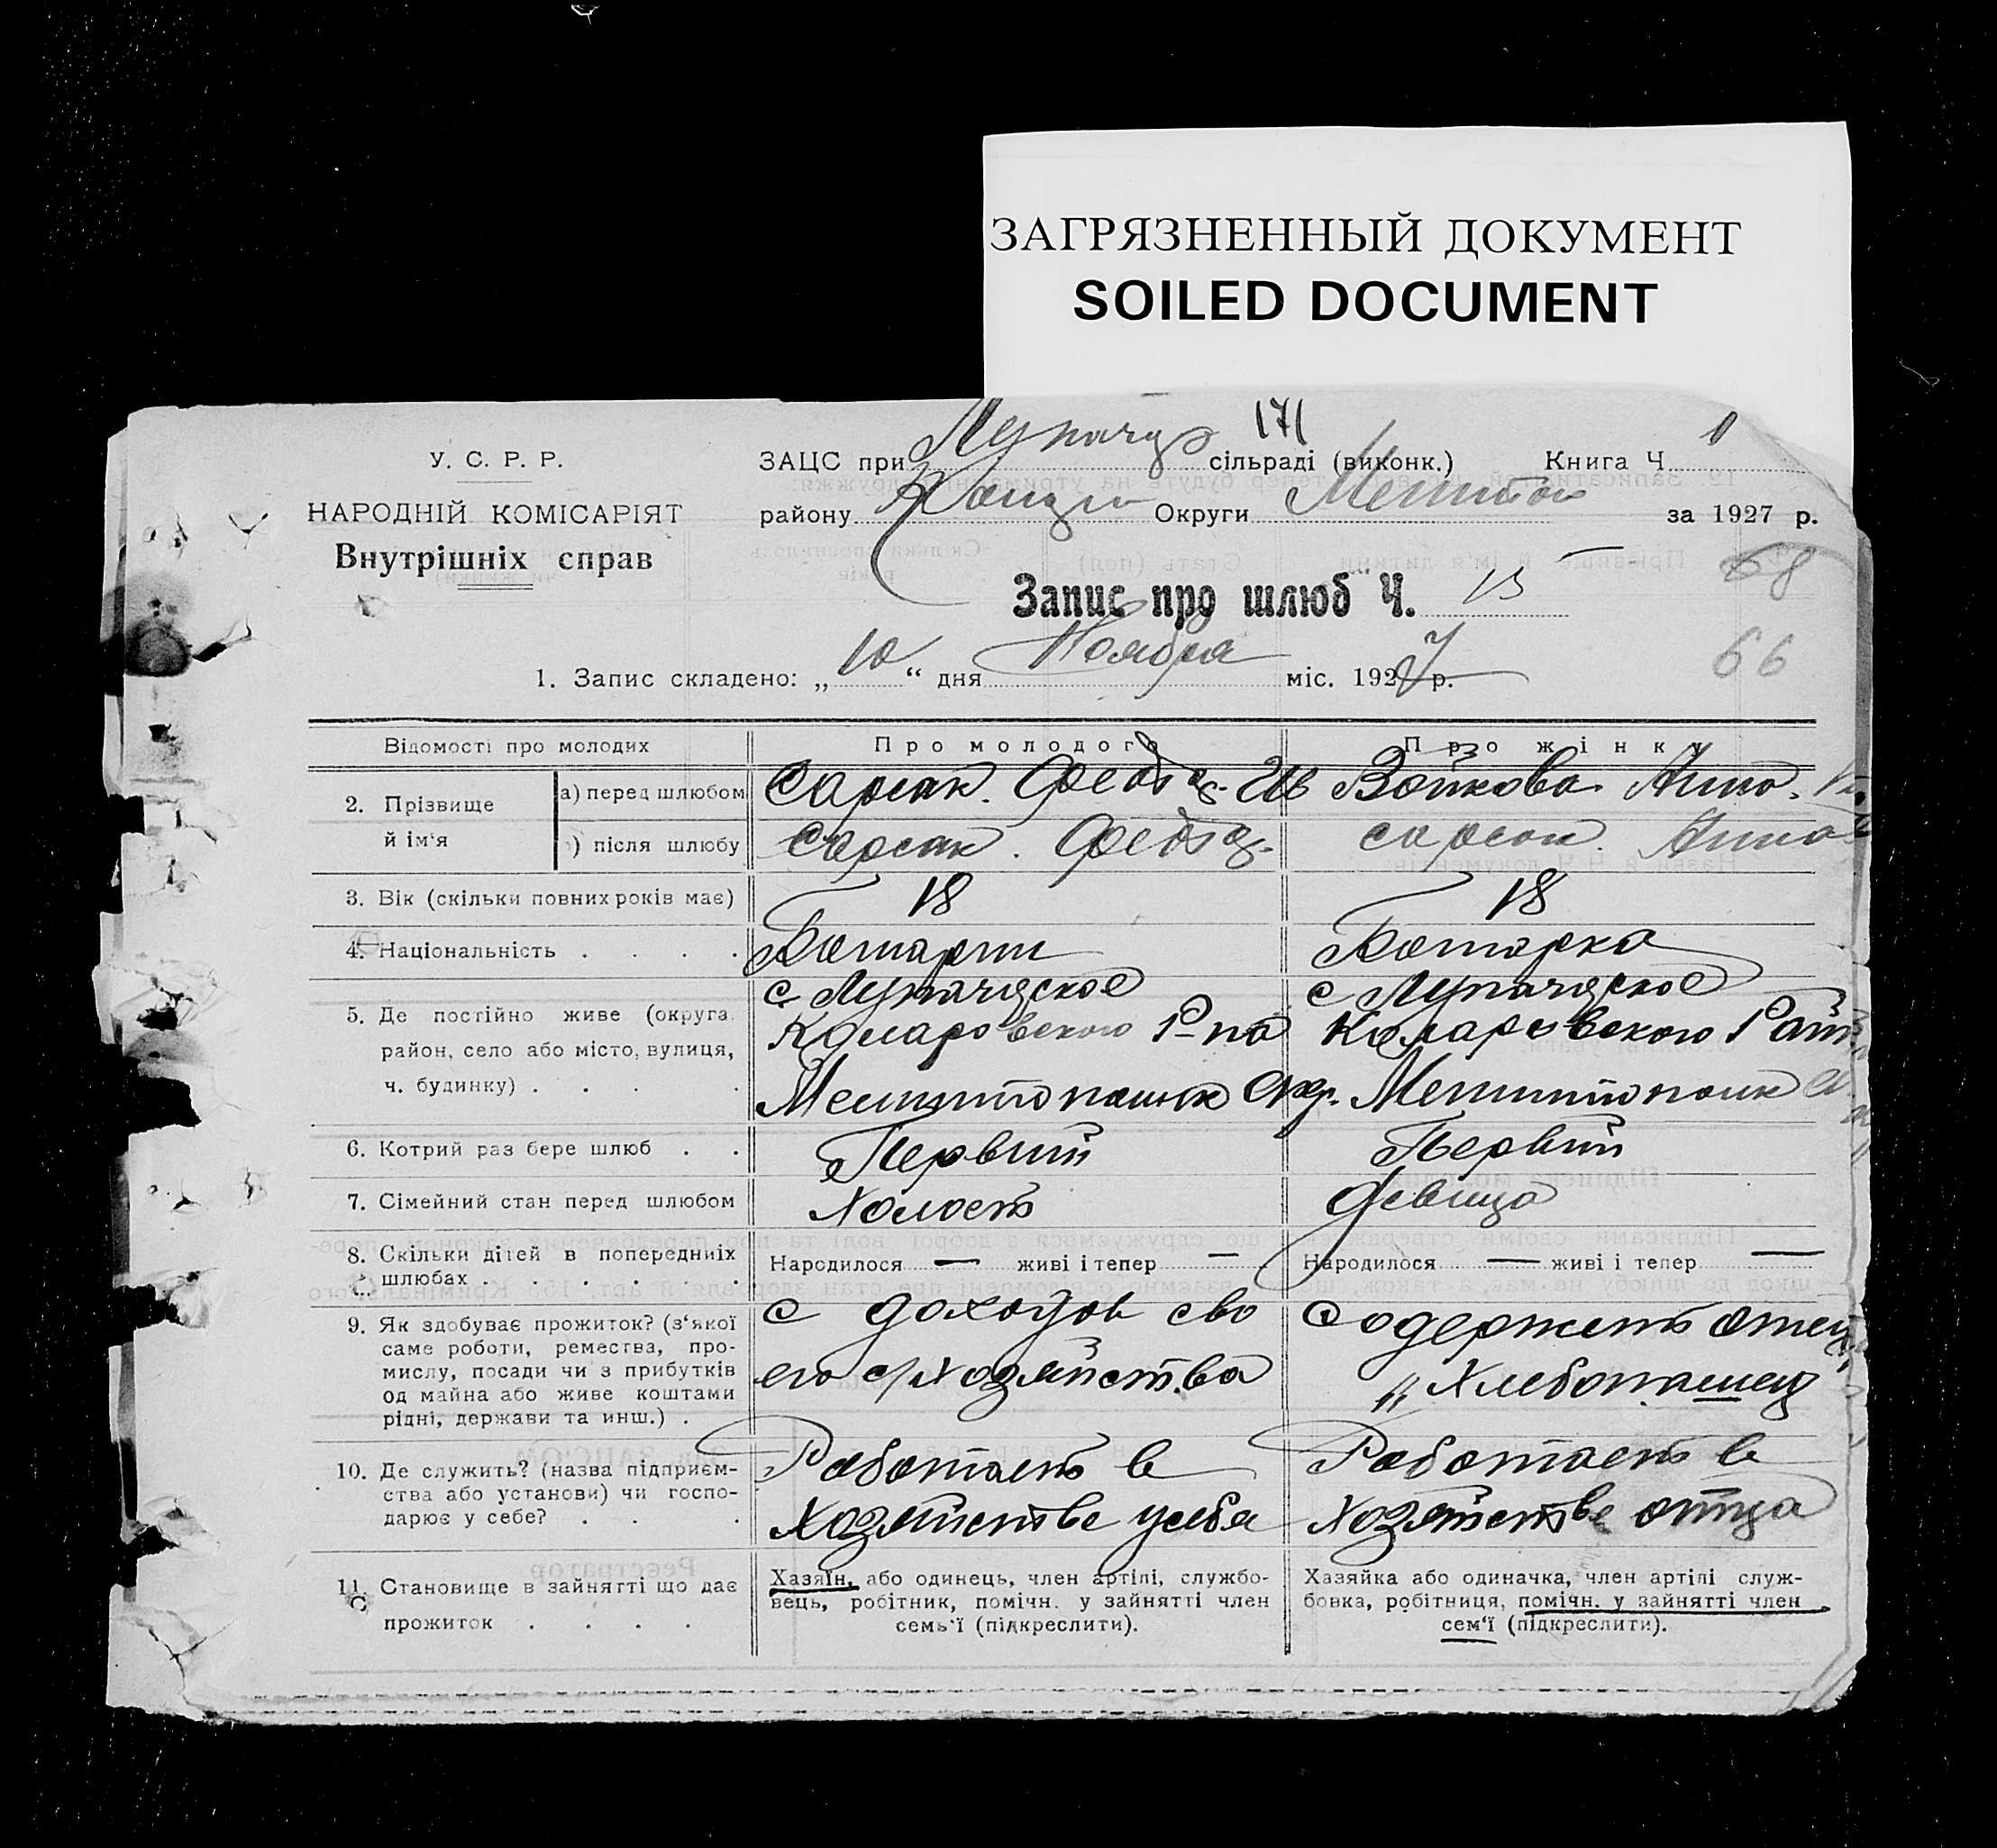 ЗАГРЯЗНЕННЫЙ ДОКУМЕНТ
SOILED DOCUMENT
171
У. С. Р. Р.
ЗАЦС при сільраді (виконк.) Книга Ч. 1
НАРОДНІЙ КОМІСАРІЯТ
району Округи за 1927 р.
Внутрішніх справ
68
Запис про шлюб Ч. 13
66
1. Запис складено: „10“ дня Ноября міс. 1927 р.
Відомості про молодих Про молодого Про жінку
2. Прізвище й ім'я
а) перед шлюбом Сарсак. Федор Войкова Анна
після шлюбу Сарсак. Федор. Сарсак. Анна
3. Вік (скільки повних років має) 18 18
4. Національність Болгарин Болгарка
5. Де постійно живе (округа, район, село або місто, вулиця, ч. будинку)
с
Коларовского Р-на
с
Коларовского
Окр.
6. Котрий раз бере шлюб Первый Первый
7. Сімейний стан перед шлюбом Холост Девица
8. Скільки дітей в попередніх шлюбах
Народилося — живі і тепер — Народилося — живі і тепер —
9. Як здобуває прожиток? (з'якої
саме роботи, ремества, про-
мислу, посади чи з прибутків
од майна або живе коштами
рідні, держави та инш.)
с доходов сво
его с/хозяйства
Содержит отец
„ Хлебопашец
10. Де служить? (назва підприєм-
ства або установи) чи госпо-
дарює у себе?
Работает в
хозяйстве у себя
Работает в
хозяйстве отца
11. Становище в зайнятті що дає
прожиток
Хазяїн, або одинець, член артілі, службо-
вець, робітник, помічн. у зайнятті член
семь'ї (підкреслити).
Хазяйка або одиначка, член артілі служ-
бовка, робітниця, помічн. у зайнятті член
сем'ї (підкреслити).